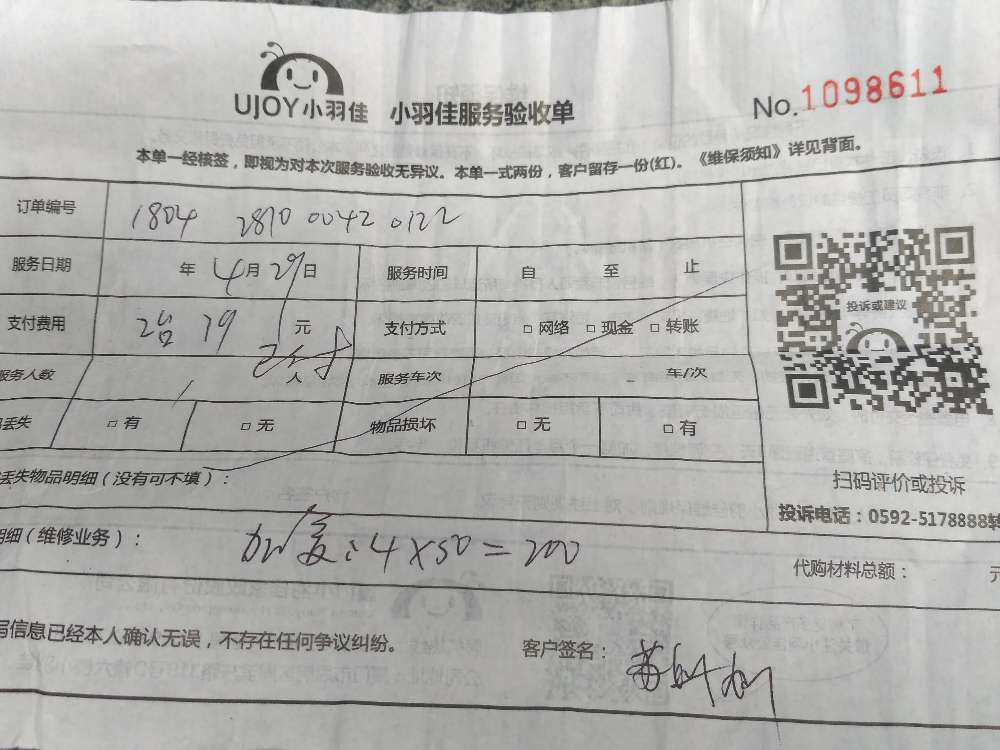 UJOY小羽佳 小羽佳服务验收单 No.1098611
本单一经核签，即视为对本次服务验收无异议。本单一式两份，客户留存一份(红)。《维保须知》详见背面。
订单编号 1804 2810 0042 0122
服务日期 年 4月29日 服务时间 自 至 止
支付费用 2台 79 元 支付方式 □ 网络 □ 现金 □ 转账
已付
服务人数 1 人 服务车次 车/次
丢失 □ 有 □ 无 物品损坏 □ 无 □ 有
丢失物品明细（没有可不填）：
明细（维修业务）： 加氟：4×50=200
代购材料总额： 元
写信息已经本人确认无误，不存在任何争议纠纷。 客户签名：
投诉或建议
扫码评价或投诉
投诉电话：0592-5178888转